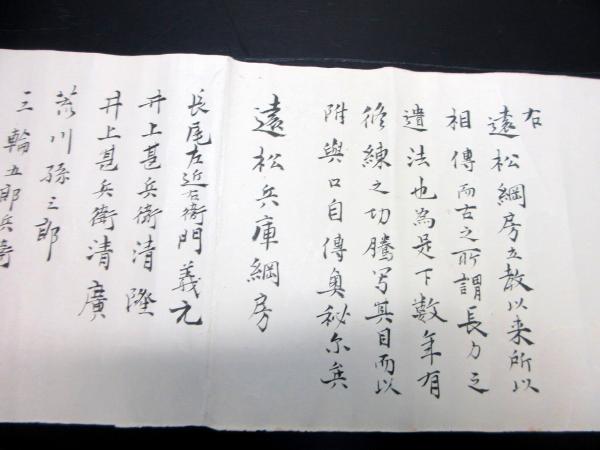 右
遠松綱房立教以来所以
相傳而古之所謂長刀之
遺法也為是下数年有
修練之切謄写其目而以
附與口自傳奥秘尓矣
遠松兵庫綱房
長尾左近右衛門義元
井上甚兵衛清隆
井上甚兵衛清廣
荒川孫三郎
三輪五郎兵衛